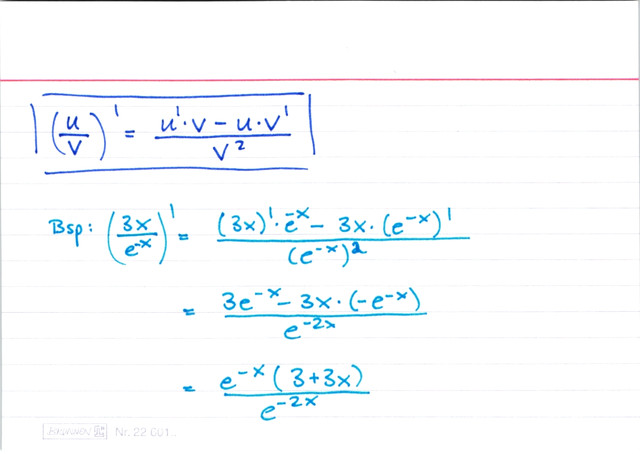 (u/v)' = (u'·v − u·v')/v²
Bsp: (3x/e^(-x))' = ((3x)'·e^(-x) − 3x·(e^(-x))')/(e^(-x))²
= (3e^(-x) − 3x·(-e^(-x)))/e^(-2x)
= (e^(-x)(3+3x))/e^(-2x)